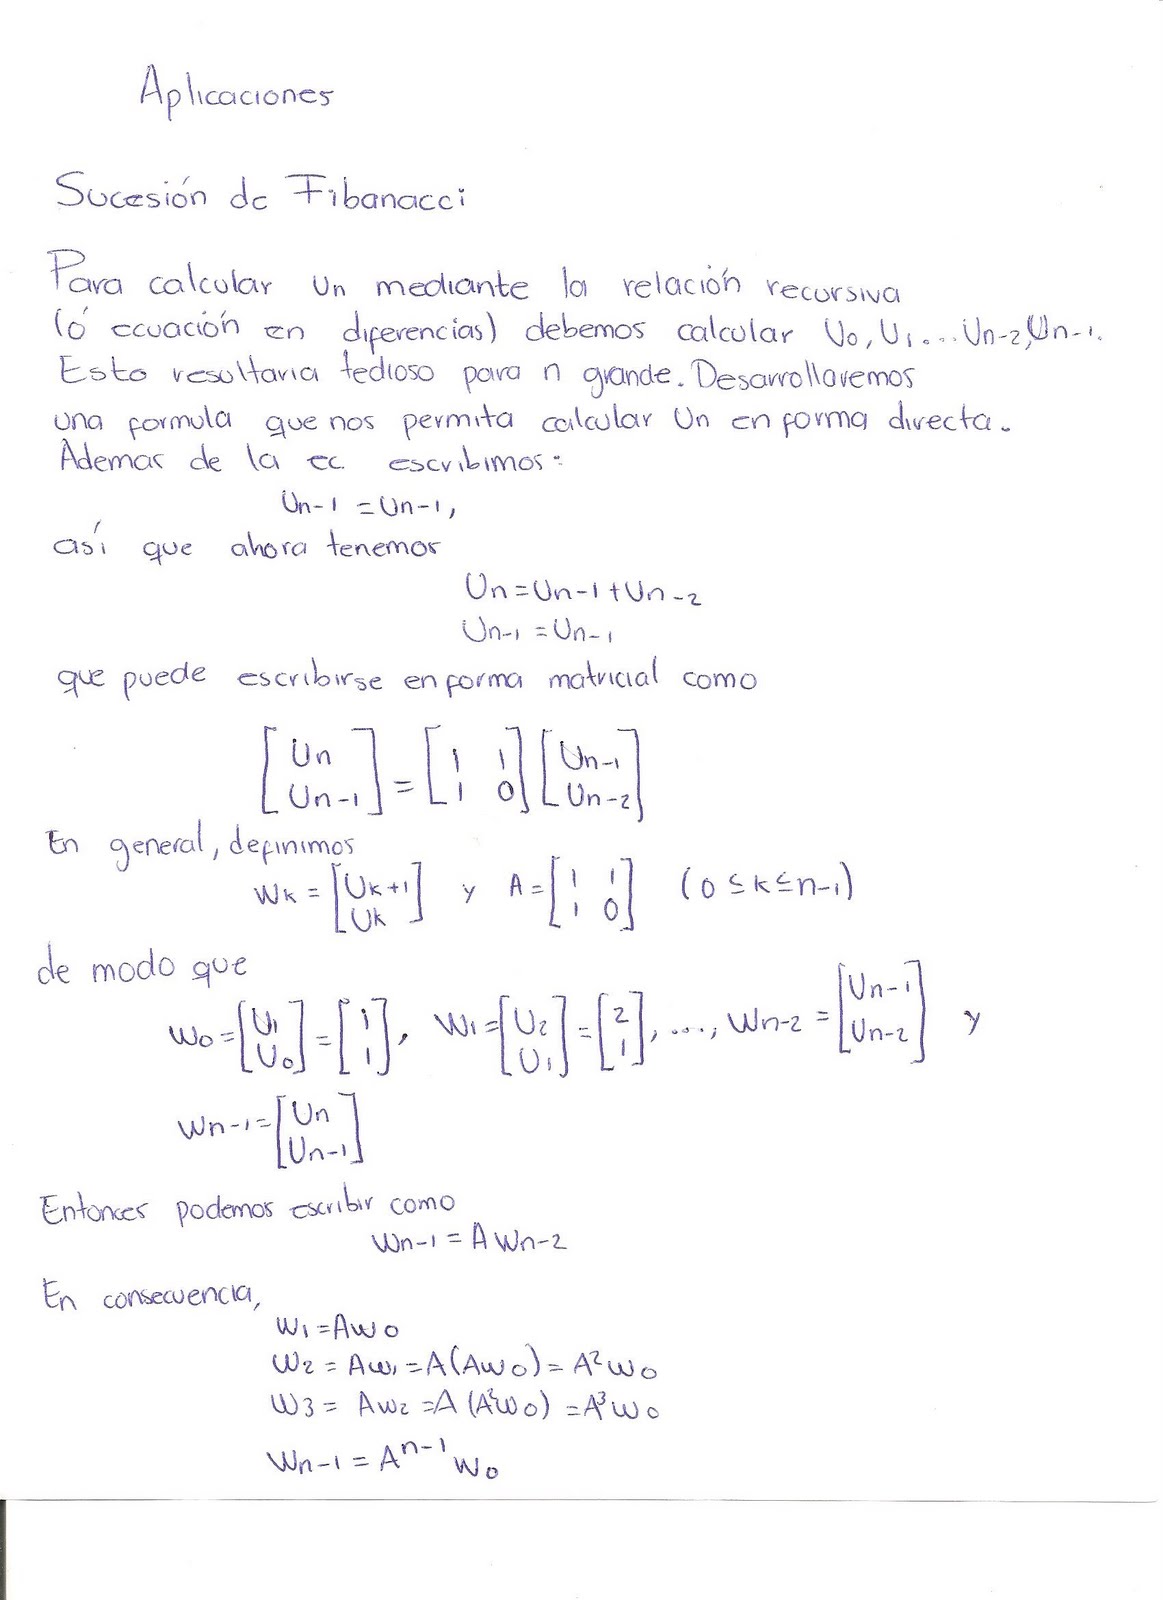 Aplicaciones
Sucesión de Fibanacci
Para calcular Un mediante la relación recursiva
(ó ecuación en diferencias) debemos calcular U₀, U₁....Un-2, Un-1.
Esto resultaria tedioso para n grande. Desarrollaremos
una formula que nos permita calcular Un en forma directa.
Ademas de la ec. escribimos:
Un-1 = Un-1,
así que ahora tenemos
Un = Un-1 + Un-2
Un-1 = Un-1
que puede escribirse en forma matricial como
[Un; Un-1] = [1 1; 1 0] [Un-1; Un-2]
En general, definimos
Wk = [Uk+1; Uk] y A = [1 1; 1 0] (0 ≤ k ≤ n-1)
de modo que
W₀ = [U₁; U₀] = [1; 1], W₁ = [U₂; U₁] = [2; 1], ..., Wn-2 = [Un-1; Un-2] y
Wn-1 = [Un; Un-1]
Entonces podemos escribir como
Wn-1 = A Wn-2
En consecuencia,
W₁ = AW₀
W₂ = AW₁ = A(AW₀) = A²W₀
W3 = AW₂ = A(A²W₀) = A³W₀
Wn-1 = Aⁿ⁻¹ W₀